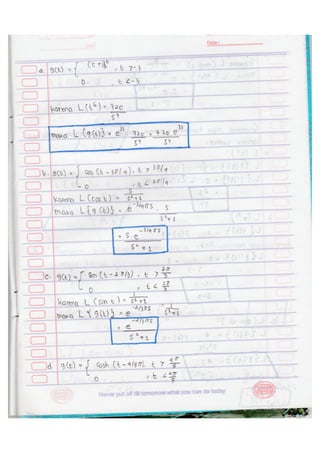 Date:
a. g(t) = { (t+3)⁶ , t > -3
0 , t < -3
karena L{t⁶} = 720
s⁷
maka L{g(t)} = e³ˢ . 720 = 720 e³ˢ
s⁷ s⁷
b. g(t) = { cos (t - 3π/4), t > 3π/4
0 , t < 3π/4
karena L(cos t) = s
s²+1
maka L{g(t)} = e^-3/4πs . s
s²+1
= s. e^-3/4πs
s²+1
c. g(t) = { sin (t - 2π/3), t > 2π
3
0 , t < 2π
3
karena L(sin t) = 1
s²+1
maka L{g(t)} = e^-2/3πs . 1
s²+1
= e^-2/3πs
s²+1
d. g(t) = { cosh (t - 4/5π) t > 4π
5
0 , t < 4π
5
Never put off til tomorrow what you can do today